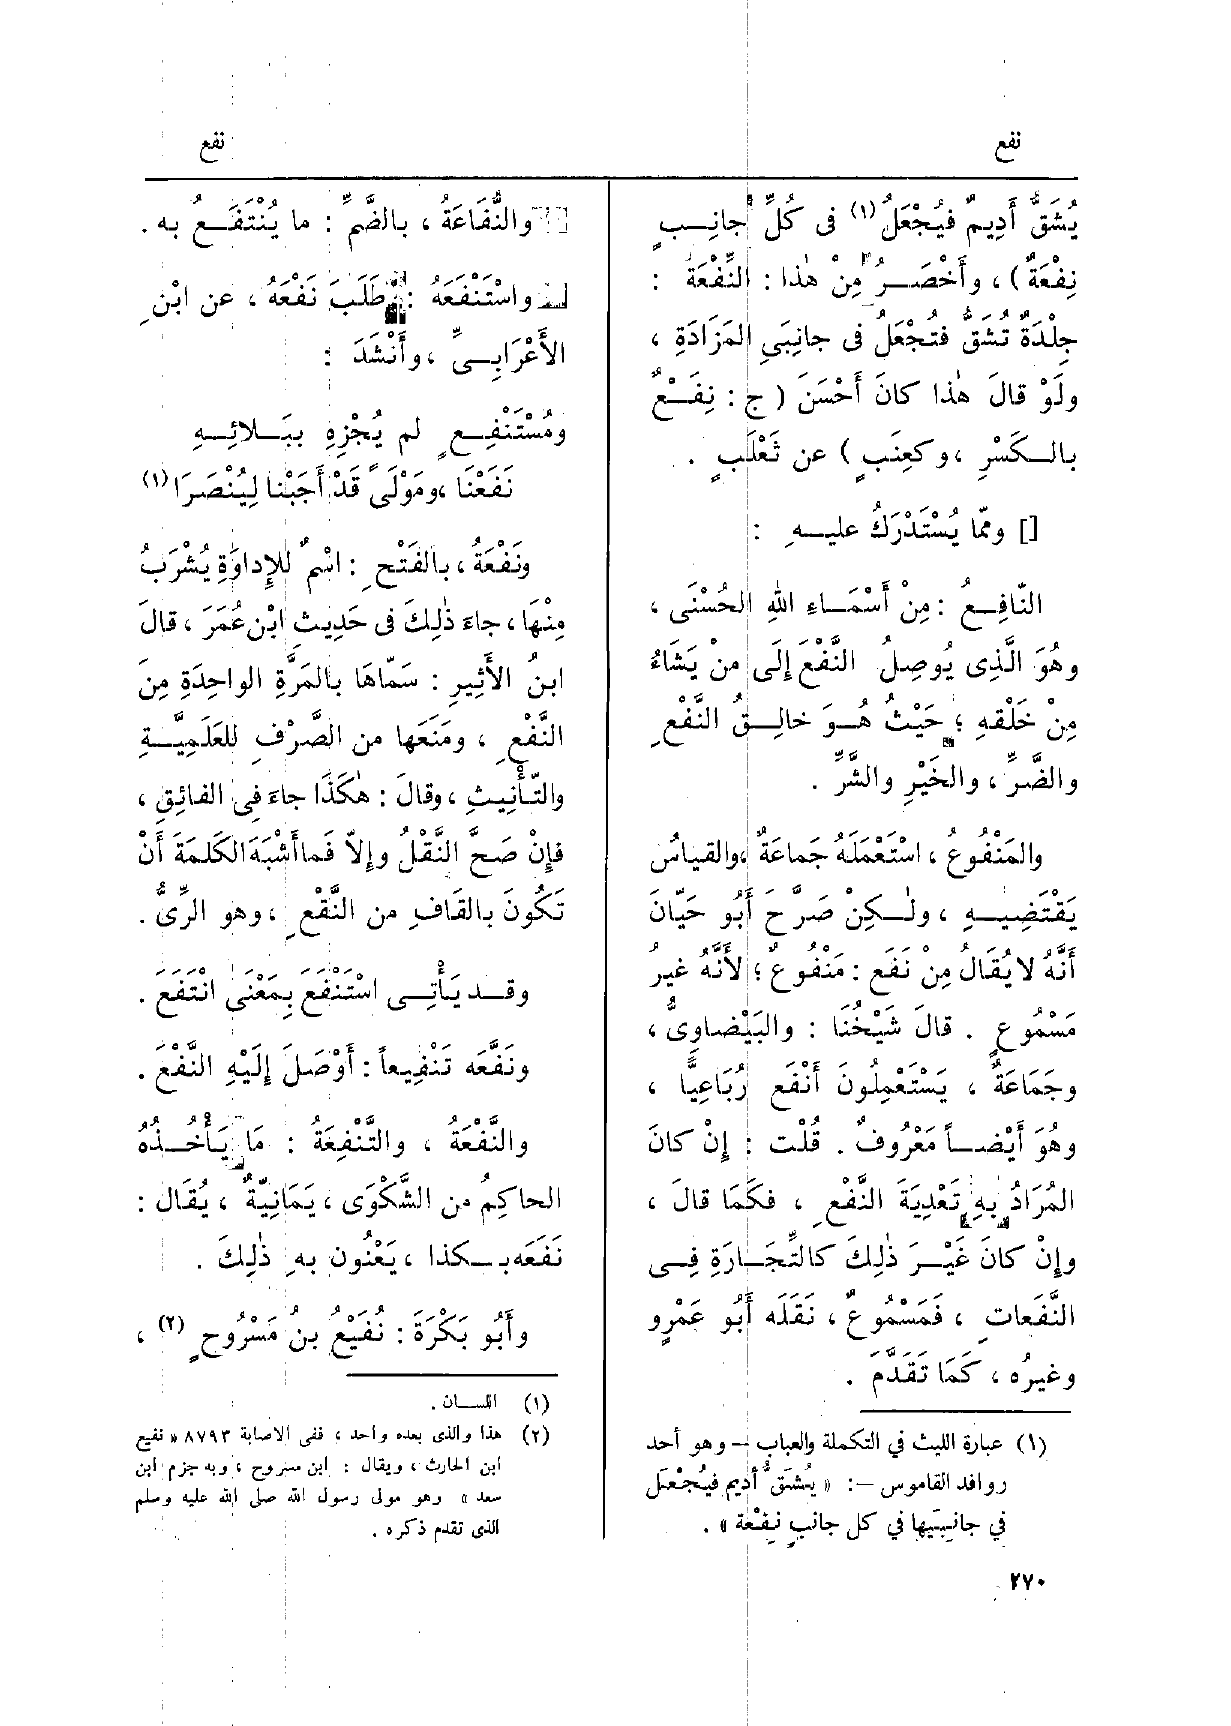 نفع
نفع
يُشَقُّ أَدِيمٌ فيُجْعَلُ (١) فى كُلِّ جانِــبٍ
نِفْعَةٌ) ، وأَخْصَــرُ مِنْ هٰذا : النِّفْعَةُ :
جِلْدَةٌ تُشَقُّ فتُجْعَلُ فى جانِبَيِ المَزادَةِ ،
ولَوْ قالَ هٰذا كانَ أَحْسَنَ ( ج : نِفَــعٌ
بالــكَسْرِ ، وكعِنَبٍ ) عن ثَعْلَبٍ .
[] وممّا يُسْتَدْرَكُ عليــهِ :
النّافِــعُ : مِنْ أَسْمَــاءِ اللهِ الحُسْنَى ،
وهُوَ الَّذِى يُوصِلُ النَّفْعَ إِلَى منْ يَشَاءُ
مِنْ خَلْقهِ ؛ حَيْثُ هُــوَ خالِــقُ النَّفْعِ
والضَّرِّ ، والخَيْرِ والشَّرِّ .
والمَنْفُوعُ ، اسْتَعْمَلَهُ جَماعَةٌ ،والقِياسُ
يَقْتَضِيــهِ ، ولٰــكِنْ صَرَّحَ أَبُو حَيّانَ
أَنَّهُ لا يُقالُ مِنْ نَفَع : مَنْفُوعٌ ؛ لأَنَّهُ غيرُ
مَسْمُوعٍ . قالَ شَيْخُنَا : والبَيْضاوِىُّ ،
وجَمَاعَةٌ ، يَسْتَعْمِلُونَ أَنْفَع رُبَاعِيًّا ،
وهُوَ أَيْضــاً مَعْرُوفٌ . قُلْت : إِنْ كانَ
المُرَادُ بهِ تَعْدِيَةَ النَّفْعِ ، فكَمَا قالَ ،
وإِنْ كانَ غَيْــرَ ذٰلِكَ كالتِّجَــارَةِ فِــى
النَّفَعاتِ ، فَمَسْمُوعٌ ، نَقَلَه أَبُو عَمْرٍو
وغيرُه ، كَمَا تَقَدَّمَ .
(١) عبارة الليث في التكملة والعباب – وهو أحد
روافد القاموس –: « يُشَقُّ أَديم فيُجْعَل
في جانِبَيها في كل جانبٍ نِفْعة » .
[] والنُّفَاعَةُ ، بالضَّمِّ : ما يُنْتَفَــعُ به .
واسْتَنْفَعَهُ : طَلَبَ نَفْعَهُ ، عن ابْنِ
الأَعْرابِــىِّ ، وأَنْشَدَ :
ومُسْتَنْفِــعٍ لم يُجْزِهِ ببَــلائِــهِ
نَفَعْنَا ،ومَوْلًى قَدْ أَجَبْنا لِيُنْصَرَا (١)
ونَفْعَةُ ، بالفَتْحِ : اسْمٌ للإِداوَةِ يُشْرَبُ
مِنْهَا ، جاءَ ذٰلِكَ فى حَدِيثِ ابْنِ عُمَرَ ، قالَ
ابنُ الأَثِيرِ : سَمّاهَا بالمَرَّةِ الواحِدَةِ مِنَ
النَّفْعِ ، ومَنَعَها من الصَّرْفِ للعَلَمِيَّــةِ
والتَّــأْنِيثِ ، وقالَ : هٰكَذَا جاءَ فِى الفائِقِ ،
فإِنْ صَحَّ النَّقْلُ وإِلاّ فَما أَشْبَهَ الكَلِمَةَ أَنْ
تَكُونَ بالقَافِ من النَّقْعِ ، وهو الرِّىُّ .
وقــد يَأْتِــى اسْتَنْفَعَ بِمَعْنَى انْتَفَع .
ونَفَّعَه تَنْفِيعاً : أَوْصَلَ إِلَيْهِ النَّفْعَ .
والنَّفْعَةُ ، والتَّنْفِعَةُ : مَا يَأْخُــذُهُ
الحاكِمُ من الشَّكْوَى ، يَمَانِيَّةٌ ، يُقَال :
نَفَعَه بــكذا ، يَعْنُون بهِ ذٰلِكَ .
وأَبُو بَكْرَةَ : نُفَيْعُ بنُ مَسْرُوحٍ (٢) ،
(١) اللســان .
(٢) هذا والذى بعده واحد ، ففى الاصابة ٨٧٩٣ « نفيع
ابن الحارث ، ويقال : ابن مسروح ، وبه جزم ابن
سعد » وهو مولى رسول الله صلى الله عليه وسلم
الذى تقدم ذكره .
٢٧٠